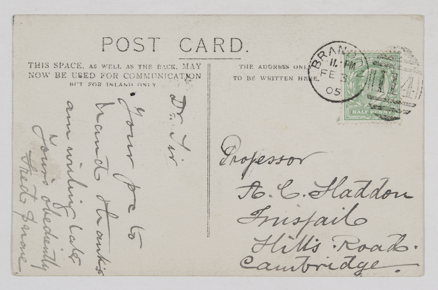 POST CARD.
THIS SPACE, AS WELL AS THE BACK, MAY
NOW BE USED FOR COMMUNICATION
BUT FOR INLAND ONLY
THE ADDRESS ONLY
TO BE WRITTEN HERE.
BRAN
FE 3
05
HALF PENNY
Dr. Sir
Your p.c. to
hand thanks
am writing later
Yours obediently
Fred
Professor
A. C. Haddon
Inisfail
Hills Road.
Cambridge.